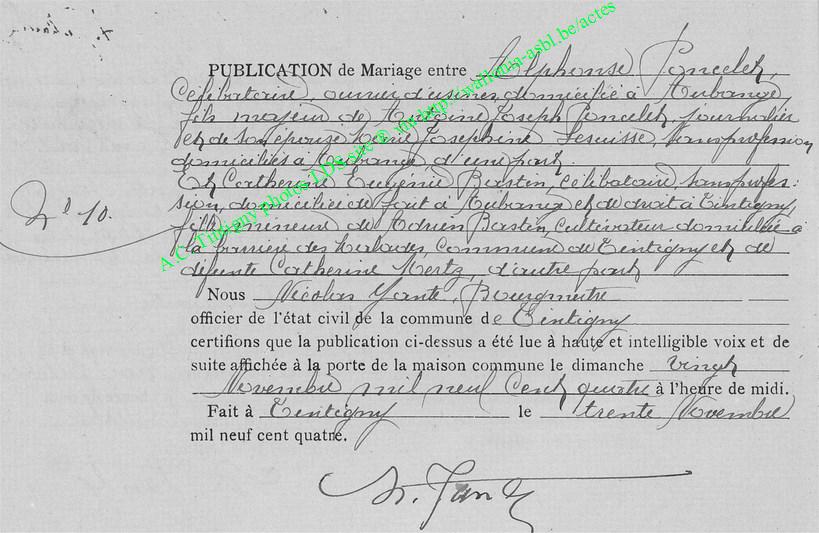 PUBLICATION de Mariage entre Alphonse Poncelet,
célibataire, ouvrier d'usines, domicilié à Aubange,
fils majeur de Antoine Joseph Poncelet, journalier
et de son épouse Marie Josephine Lesuisse, sans profession
domiciliés à Aubange, d'une part.
Et Catherine Eugénie Bastin, célibataire, sans profes:
sion, domiciliée de fait à Aubange et de droit à Tintigny,
fille mineure de Adrien Bastin, cultivateur domicilié à
la barrière des Malades, commune de Tintigny et de
défunte Catherine Mertz, d'autre part
N° 10.
Nous Nicolas Bourgmestre
officier de l'état civil de la commune de Tintigny
certifions que la publication ci-dessus a été lue à haute et intelligible voix et de
suite affichée à la porte de la maison commune le dimanche vingt
Novembre mil neuf cent quatre à l'heure de midi.
Fait à Tintigny le trente Novembre
mil neuf cent quatre.
A.C. Tintigny photos LDS site © via http://wallonia-asbl.be/actes